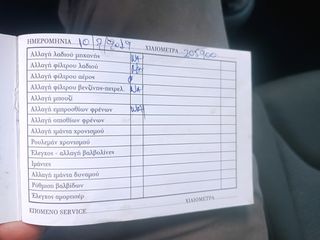 ΗΜΕΡΟΜΗΝΙΑ 10/7/2019 ΧΙΛΙΟΜΕΤΡΑ 205900
Αλλαγή λαδιού μηχανής ΝΑΙ
Αλλαγή φίλτρου λαδιού ΝΑΙ
Αλλαγή φίλτρου αέρος
Αλλαγή φίλτρου βενζίνας-πετρελ. ΝΑΙ
Αλλαγή μπουζί
Αλλαγή εμπροσθίων φρένων ΝΑΙ
Αλλαγή οπισθίων φρένων
Αλλαγή ιμάντα χρονισμού
Ρουλεμάν χρονισμού
Έλεγχος - αλλαγή βαλβολίνες
Ιμάντες
Αλλαγή ιμάντα δυναμού
Ρύθμιση βαλβίδων
Έλεγχος αμορτισέρ
ΕΠΟΜΕΝΟ SERVICE ΧΙΛΙΟΜΕΤΡΑ